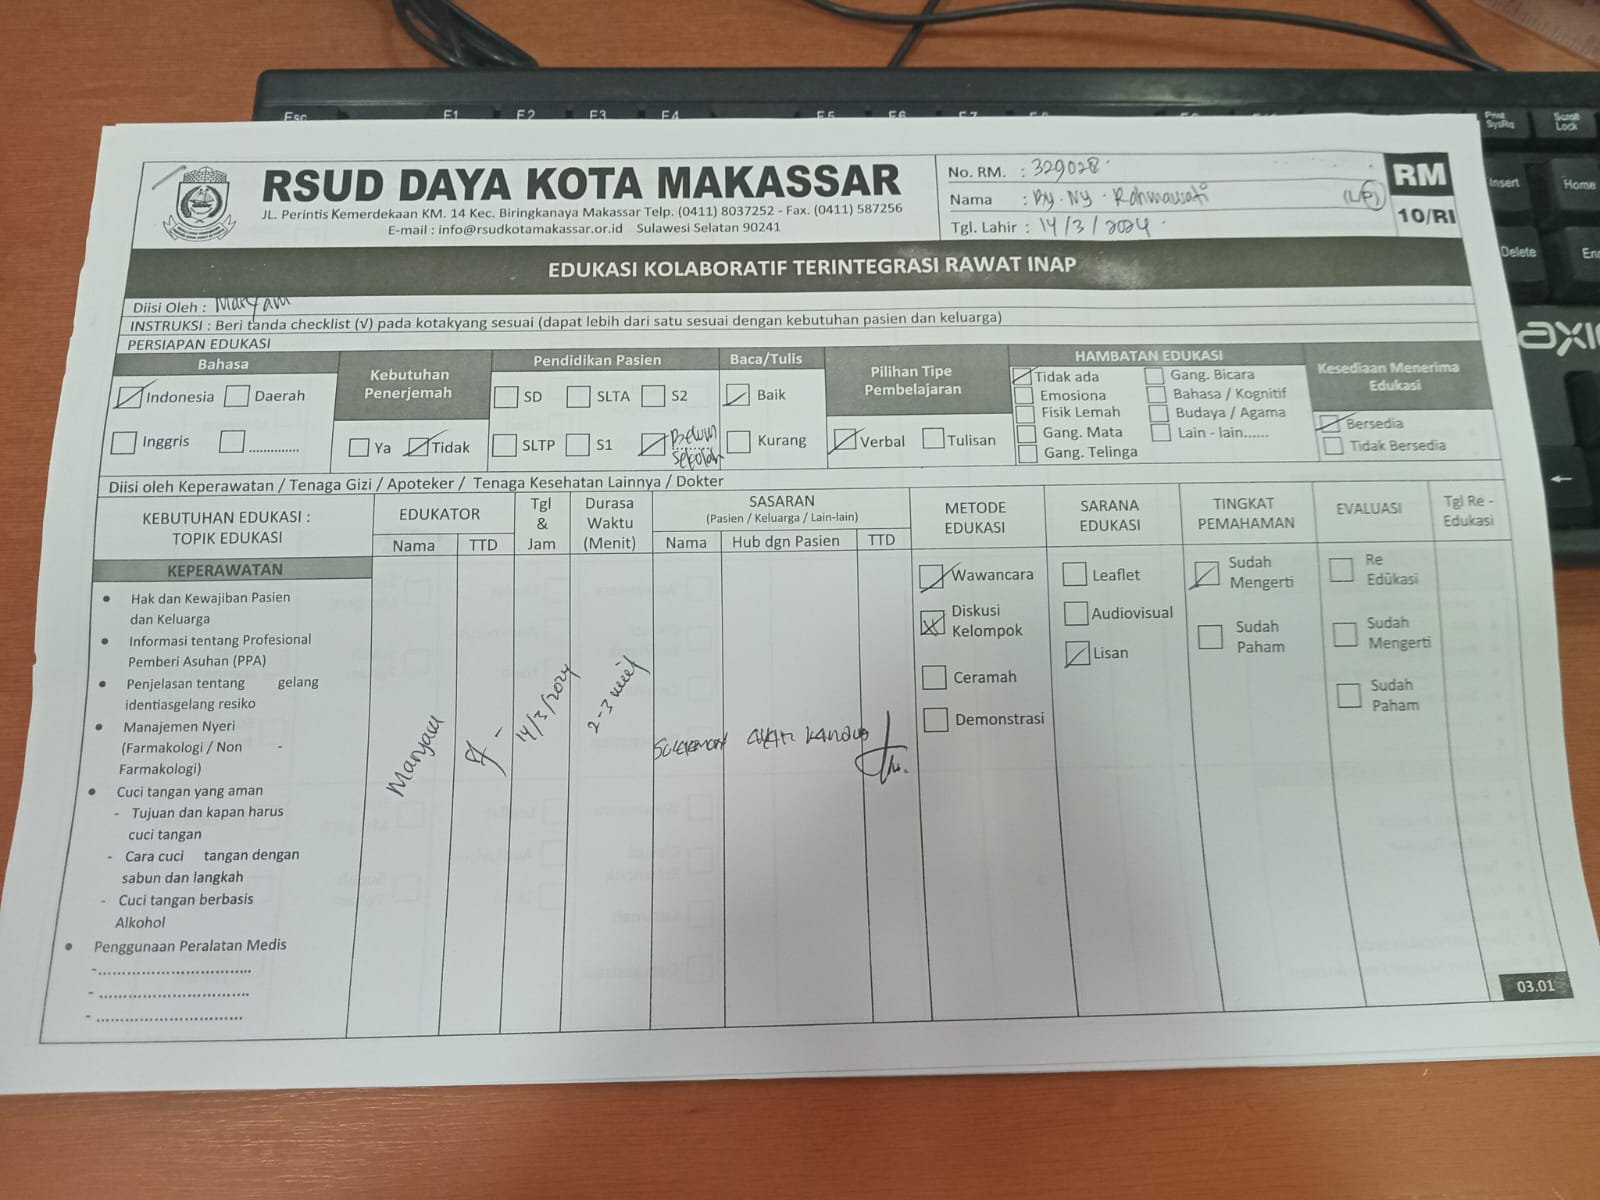 RSUD DAYA KOTA MAKASSAR
JL. Perintis Kemerdekaan KM. 14 Kec. Biringkanaya Makassar Telp. (0411) 8037252 - Fax. (0411) 587256
E-mail : info@rsudkotamakassar.or.id Sulawesi Selatan 90241
No. RM. : 329028
Nama : By. Ny. Rahmawati (L/P)
Tgl. Lahir : 14/3/2024
RM
10/RI
EDUKASI KOLABORATIF TERINTEGRASI RAWAT INAP
Diisi Oleh : Maryam
INSTRUKSI : Beri tanda checklist (√) pada kotakyang sesuai (dapat lebih dari satu sesuai dengan kebutuhan pasien dan keluarga)
PERSIAPAN EDUKASI
Bahasa
Indonesia Daerah
Inggris ..............
Kebutuhan
Penerjemah
Ya Tidak
Pendidikan Pasien
SD SLTA S2
SLTP S1 Belum
sekolah
Baca/Tulis
Baik
Kurang
Pilihan Tipe
Pembelajaran
Verbal Tulisan
HAMBATAN EDUKASI
Tidak ada Gang. Bicara
Emosiona Bahasa / Kognitif
Fisik Lemah Budaya / Agama
Gang. Mata Lain - lain......
Gang. Telinga
Kesediaan Menerima
Edukasi
Bersedia
Tidak Bersedia
Diisi oleh Keperawatan / Tenaga Gizi / Apoteker / Tenaga Kesehatan Lainnya / Dokter
KEBUTUHAN EDUKASI :
TOPIK EDUKASI
EDUKATOR
Nama TTD
Tgl
&
Jam
Durasa
Waktu
(Menit)
SASARAN
(Pasien / Keluarga / Lain-lain)
Nama Hub dgn Pasien TTD
METODE
EDUKASI
SARANA
EDUKASI
TINGKAT
PEMAHAMAN
EVALUASI
Tgl Re -
Edukasi
KEPERAWATAN
• Hak dan Kewajiban Pasien
dan Keluarga
• Informasi tentang Profesional
Pemberi Asuhan (PPA)
• Penjelasan tentang gelang
identiasgelang resiko
• Manajemen Nyeri
(Farmakologi / Non -
Farmakologi)
• Cuci tangan yang aman
- Tujuan dan kapan harus
cuci tangan
- Cara cuci tangan dengan
sabun dan langkah
- Cuci tangan berbasis
Alkohol
• Penggunaan Peralatan Medis
-.................................
- ................................
- ...............................
Maryam
14/3/2024
2-3 menit
ayah kandung
Wawancara
Diskusi
Kelompok
Ceramah
Demonstrasi
Leaflet
Audiovisual
Lisan
Sudah
Mengerti
Sudah
Paham
Re
Edukasi
Sudah
Mengerti
Sudah
Paham
03.01
Esc F1 F2 F3 F4 F5 F6 F7
Print
SysRq
Scroll
Lock
Insert
Home
Delete